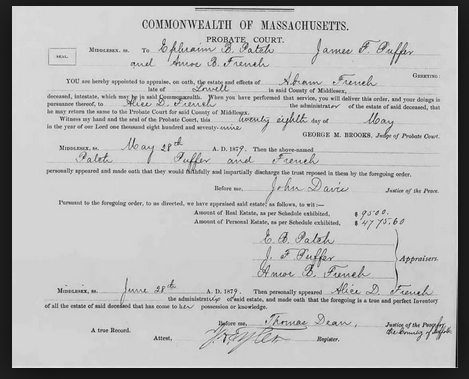 COMMONWEALTH OF MASSACHUSETTS.
PROBATE COURT.
SEAL.
MIDDLESEX, ss. To Ephraim B. Patch James F. Puffer
and Amos B. French GREETING:
YOU are hereby appointed to appraise, on oath, the estate and effects of Abram French
late of Lowell in said County of Middlesex,
deceased, intestate, which may be in said Commonwealth. When you have performed that service, you will deliver this order, and your doings in
pursuance thereof, to Alice D. French the administratrix of the estate of said deceased, that
he may return the same to the Probate Court for said County of Middlesex.
Witness my hand and the seal of the Probate Court, this twenty eighth day of May
in the year of our Lord one thousand eight hundred and seventy-nine
GEORGE M. BROOKS, Judge of Probate Court.
MIDDLESEX, ss. May 28th A. D. 1879. Then the above-named
Patch Puffer and French
personally appeared and made oath that they would faithfully and impartially discharge the trust reposed in them by the foregoing order.
Before me, John Davis Justice of the Peace.
Pursuant to the foregoing order, to us directed, we have appraised said estate, as follows, to wit:—
Amount of Real Estate, as per Schedule exhibited, $ 9500.
Amount of Personal Estate, as per Schedule exhibited, $ 4775.60
E. B. Patch
J. F. Puffer
Amos B. French
Appraisers.
MIDDLESEX, ss. June 28th A. D. 1879. Then personally appeared Alice D. French
the administratrix of said estate, and made oath that the foregoing is a true and perfect Inventory
of all the estate of said deceased that has come to her possession or knowledge.
Before me, Thomas Dean, Justice of the Peace for
the County of
A true Record. Attest, Register.